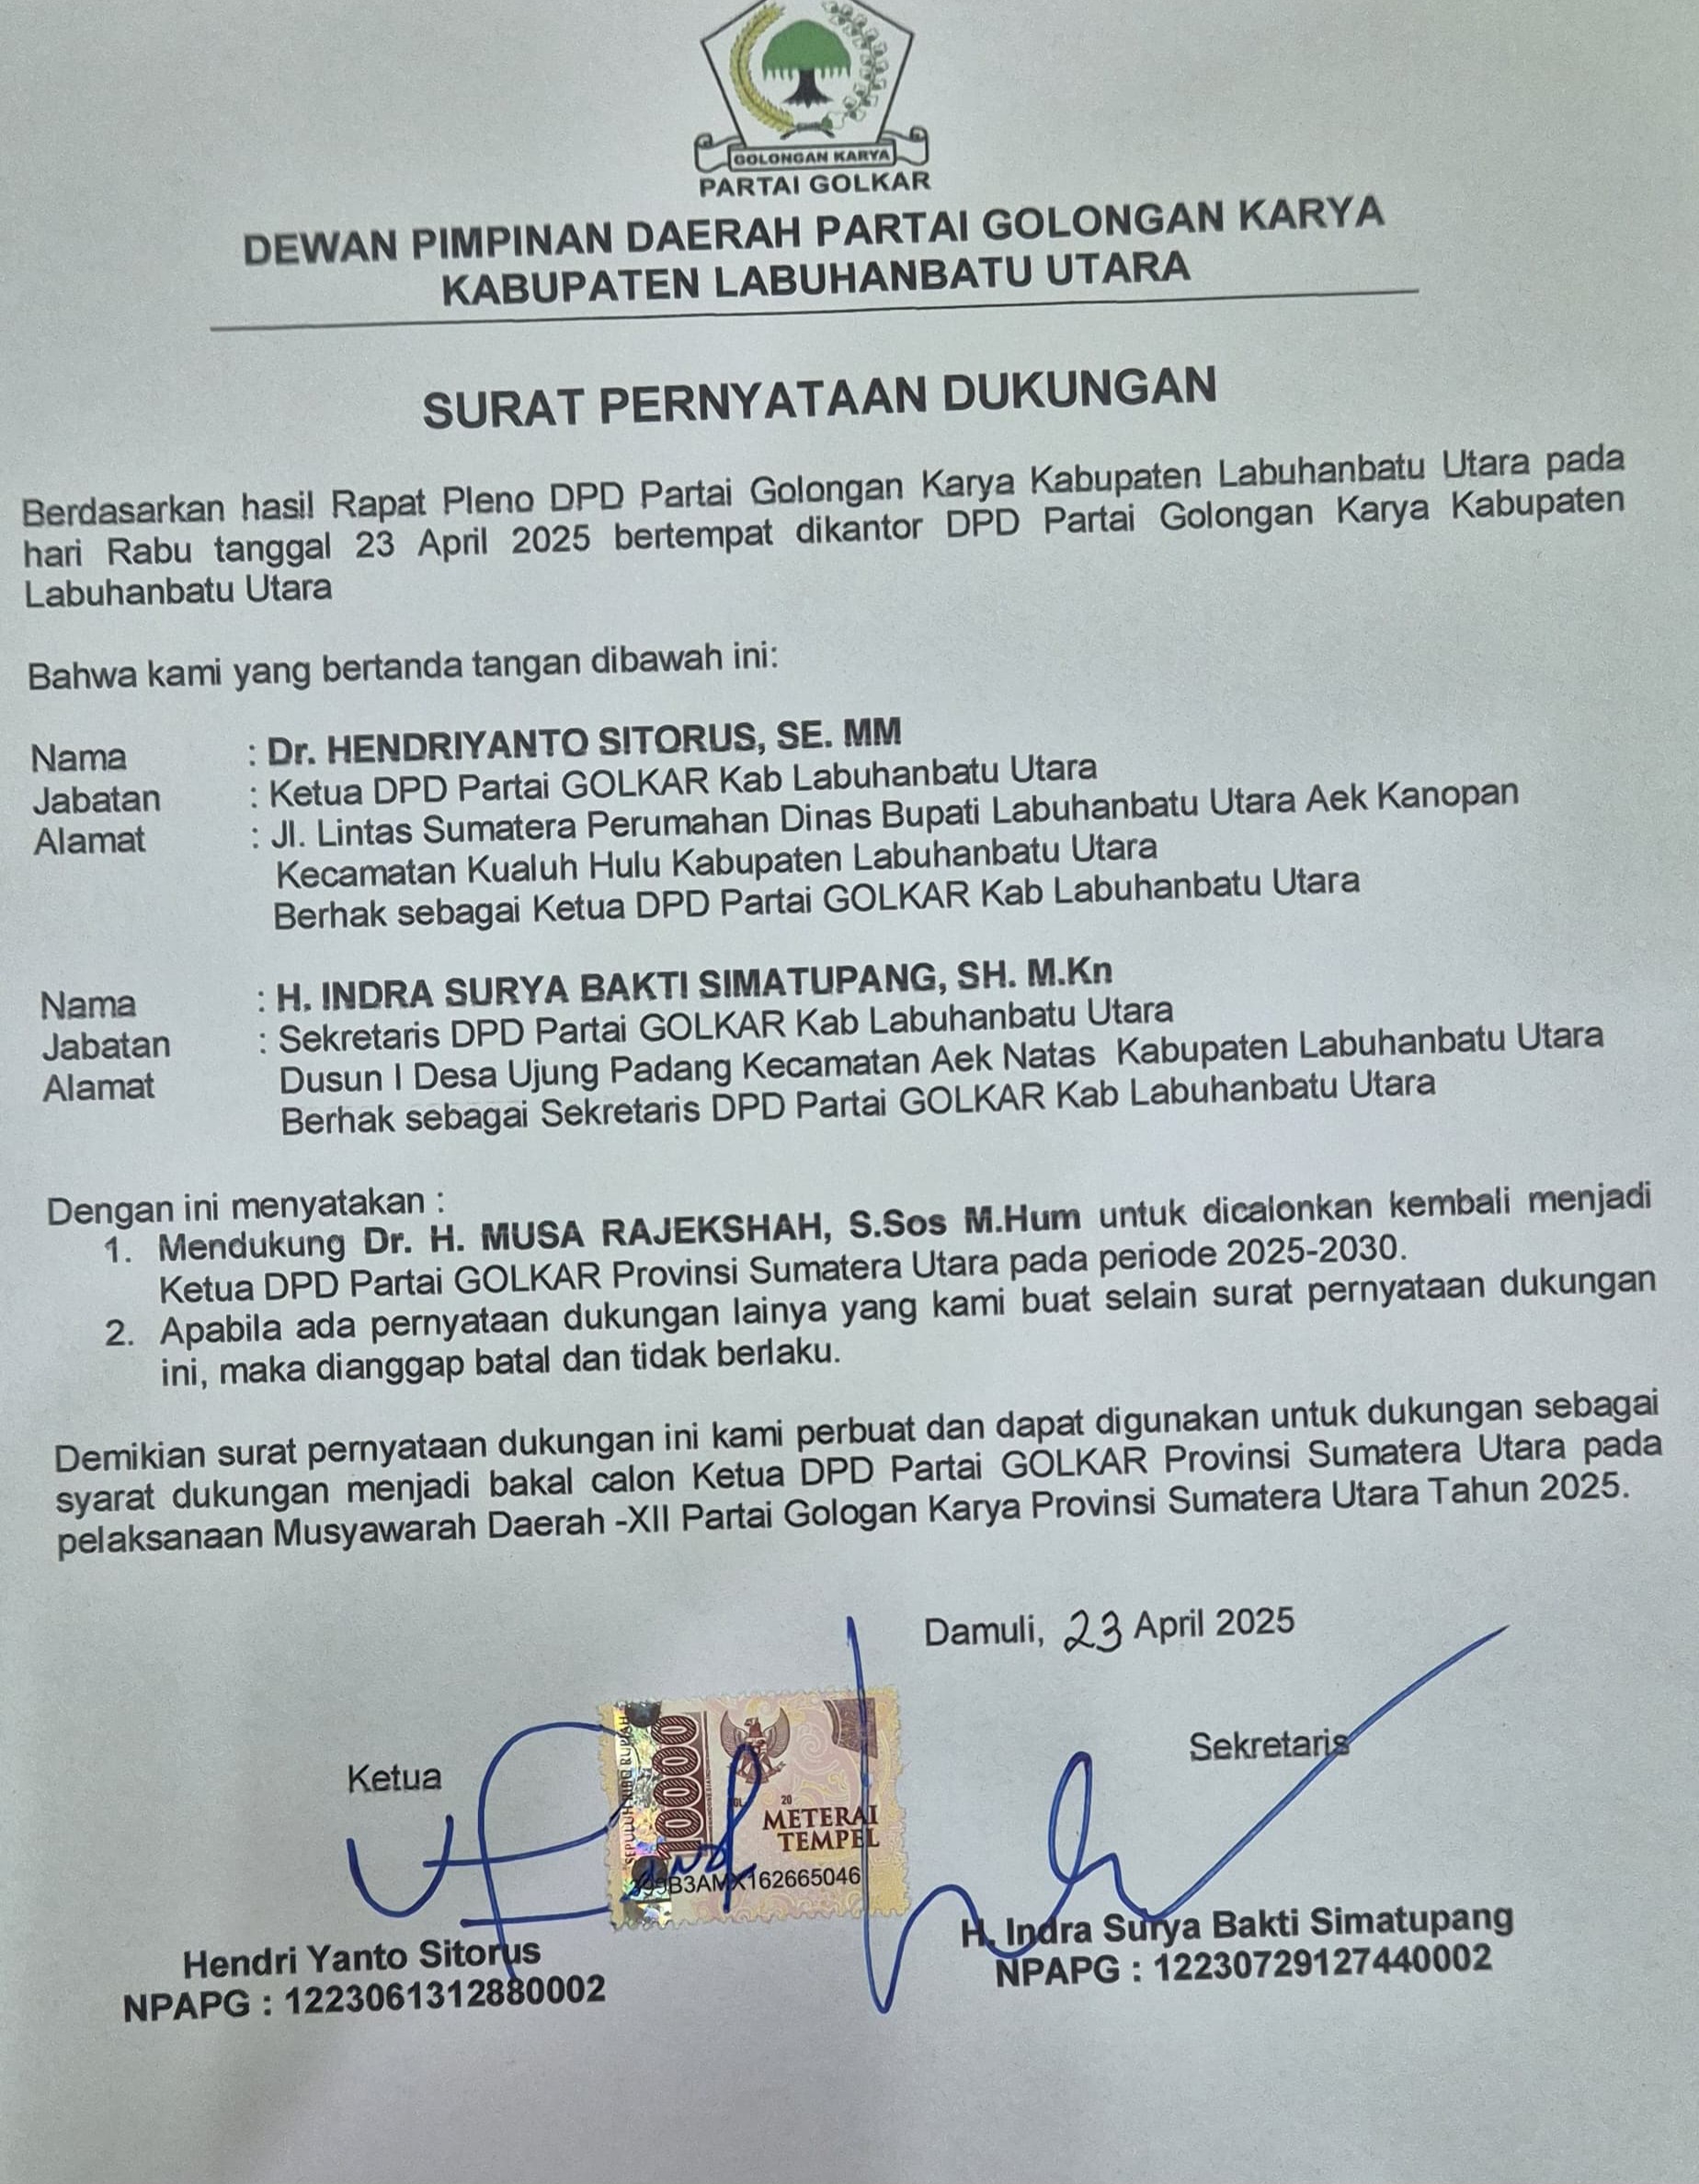 GOLONGAN KARYA
PARTAI GOLKAR
DEWAN PIMPINAN DAERAH PARTAI GOLONGAN KARYA
KABUPATEN LABUHANBATU UTARA
SURAT PERNYATAAN DUKUNGAN
Berdasarkan hasil Rapat Pleno DPD Partai Golongan Karya Kabupaten Labuhanbatu Utara pada
hari Rabu tanggal 23 April 2025 bertempat dikantor DPD Partai Golongan Karya Kabupaten
Labuhanbatu Utara
Bahwa kami yang bertanda tangan dibawah ini:
Nama : Dr. HENDRIYANTO SITORUS, SE. MM
Jabatan : Ketua DPD Partai GOLKAR Kab Labuhanbatu Utara
Alamat : Jl. Lintas Sumatera Perumahan Dinas Bupati Labuhanbatu Utara Aek Kanopan
Kecamatan Kualuh Hulu Kabupaten Labuhanbatu Utara
Berhak sebagai Ketua DPD Partai GOLKAR Kab Labuhanbatu Utara
Nama : H. INDRA SURYA BAKTI SIMATUPANG, SH. M.Kn
Jabatan : Sekretaris DPD Partai GOLKAR Kab Labuhanbatu Utara
Alamat Dusun I Desa Ujung Padang Kecamatan Aek Natas Kabupaten Labuhanbatu Utara
Berhak sebagai Sekretaris DPD Partai GOLKAR Kab Labuhanbatu Utara
Dengan ini menyatakan :
1. Mendukung Dr. H. MUSA RAJEKSHAH, S.Sos M.Hum untuk dicalonkan kembali menjadi
Ketua DPD Partai GOLKAR Provinsi Sumatera Utara pada periode 2025-2030.
2. Apabila ada pernyataan dukungan lainya yang kami buat selain surat pernyataan dukungan
ini, maka dianggap batal dan tidak berlaku.
Demikian surat pernyataan dukungan ini kami perbuat dan dapat digunakan untuk dukungan sebagai
syarat dukungan menjadi bakal calon Ketua DPD Partai GOLKAR Provinsi Sumatera Utara pada
pelaksanaan Musyawarah Daerah -XII Partai Gologan Karya Provinsi Sumatera Utara Tahun 2025.
Damuli, 23 April 2025
Ketua
Sekretaris
SEPULUH RIBU RUPIAH
10000
20
METERAI
TEMPEL
B3AMX162665046
Hendri Yanto Sitorus
NPAPG : 1223061312880002
H. Indra Surya Bakti Simatupang
NPAPG : 12230729127440002